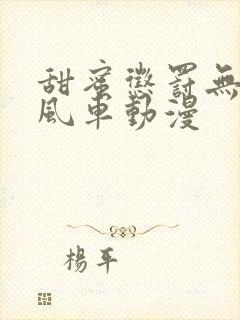 甜蜜懲罰無
風車動漫
楊平